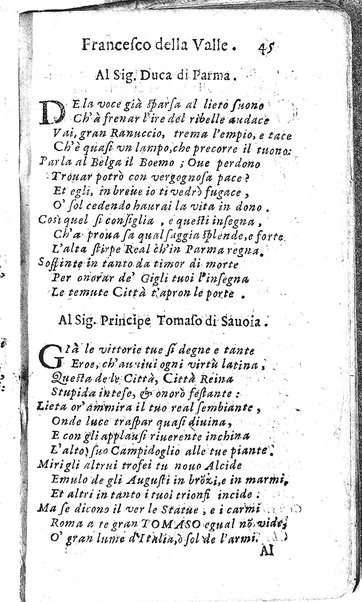 Francesco della Valle. 45
Al Sig. Duca di Parma.
DE la voce già sparsa al lieto suono
Ch'à frenar l'ire del ribelle audace
Vai, gran Ranuccio, trema l'empio, e tace
Ch'è quasi vn lampo, che precorre il tuono:
Parla al Belga il Boemo; Oue perdono
Trouar potrò con vergognosa pace?
Et egli, in breue io ti vedrò fugace,
O' sol cedendo haurai la vita in dono.
Così quel si consiglia, e questi insegna,
Ch'a proua sa qual saggia splende, e forte
L'alta stirpe Real ch'in Parma regna.
Sospinte in tanto da timor di morte
Per onorar de' Gigli tuoi l'insegna
Le temute Città t'apron le porte.
Al Sig. Principe Tomaso di Sauoia.
GIà le vittorie tue sì degne e tante
Eroe, ch'auuiui ogni virtù latina,
Questa de le Città, Città Reina
Stupida intese, & onorò festante:
Lieta or'ammira il tuo real sembiante,
Onde luce traspar quasi diuina,
E con gli applausi riuerente inchina
L'alto suo Campidoglio alle tue piante.
Mirigli altrui trofei tu nouo Alcide
Emulo de gli Augusti in brōzi, e in marmi,
Et altri in tanto i tuoi trionfi incide:
Ma se dicono il ver le Statue, e i carmi
Roma a te gran TOMASO egual nō vide,
O' gran lume d'Italia, ò sol de l'armi.
Al